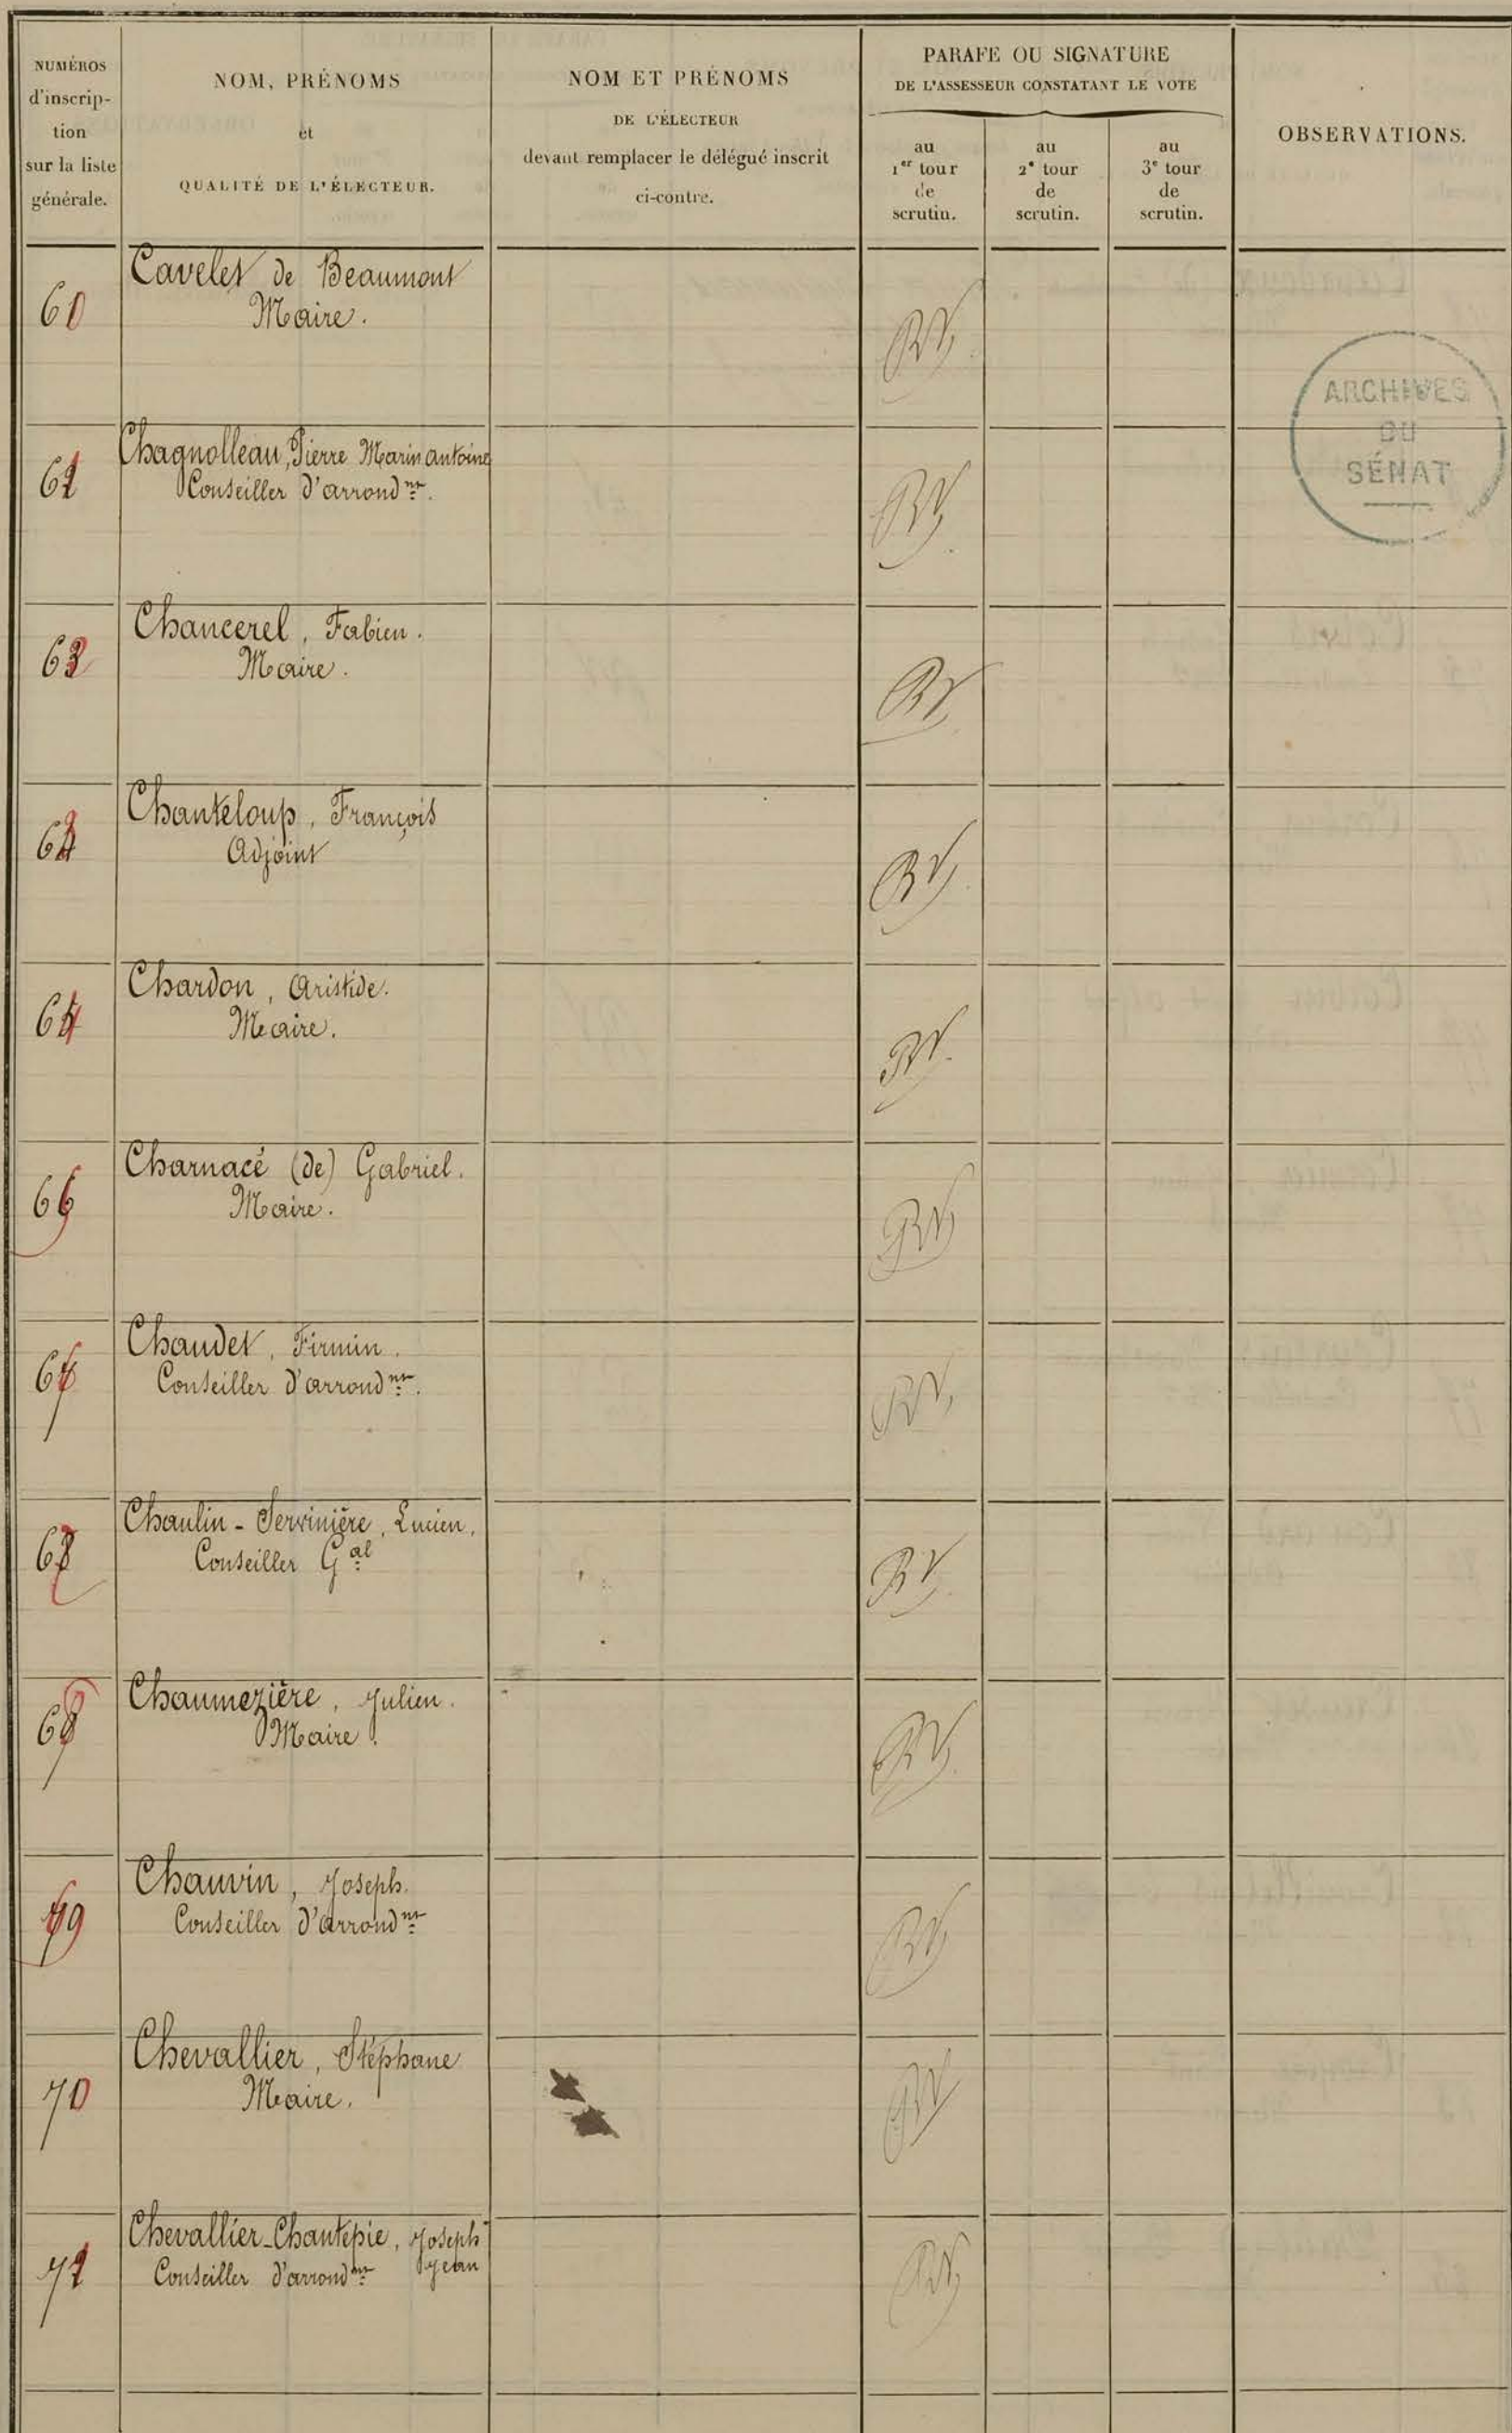 NUMÉROS
d'inscrip-
tion
sur la liste
générale.
NOM, PRÉNOMS
et
QUALITÉ DE L'ÉLECTEUR.
NOM ET PRÉNOMS
DE L'ÉLECTEUR
devant remplacer le délégué inscrit
ci-contre.
PARAFE OU SIGNATURE
DE L'ASSESSEUR CONSTATANT LE VOTE
au
1er tour
de
scrutin.
au
2e tour
de
scrutin.
au
3e tour
de
scrutin.
OBSERVATIONS.
60
Cavelet de Beaumont
Maire.
ARCHIVES
DU
SÉNAT
61
Chagnolleau, Pierre Marin Antoine
Conseiller d'arrondnt.
62
Chancerel, Fabien.
Maire.
63
Chanteloup, François
Adjoint
64
Chardon, Aristide.
Maire.
65
Charnacé (de) Gabriel.
Maire.
66
Chaudet, Firmin.
Conseiller d'arrondnt.
67
Chaulin-Servinière, Lucien,
Conseiller Gal
68
Chaumezière, Julien.
Maire.
69
Chauvin, Joseph.
Conseiller d'arrondnt
70
Chevallier, Stéphane
Maire.
71
Chevallier-Chantepie, Joseph
Conseiller d'arrondnt Jean